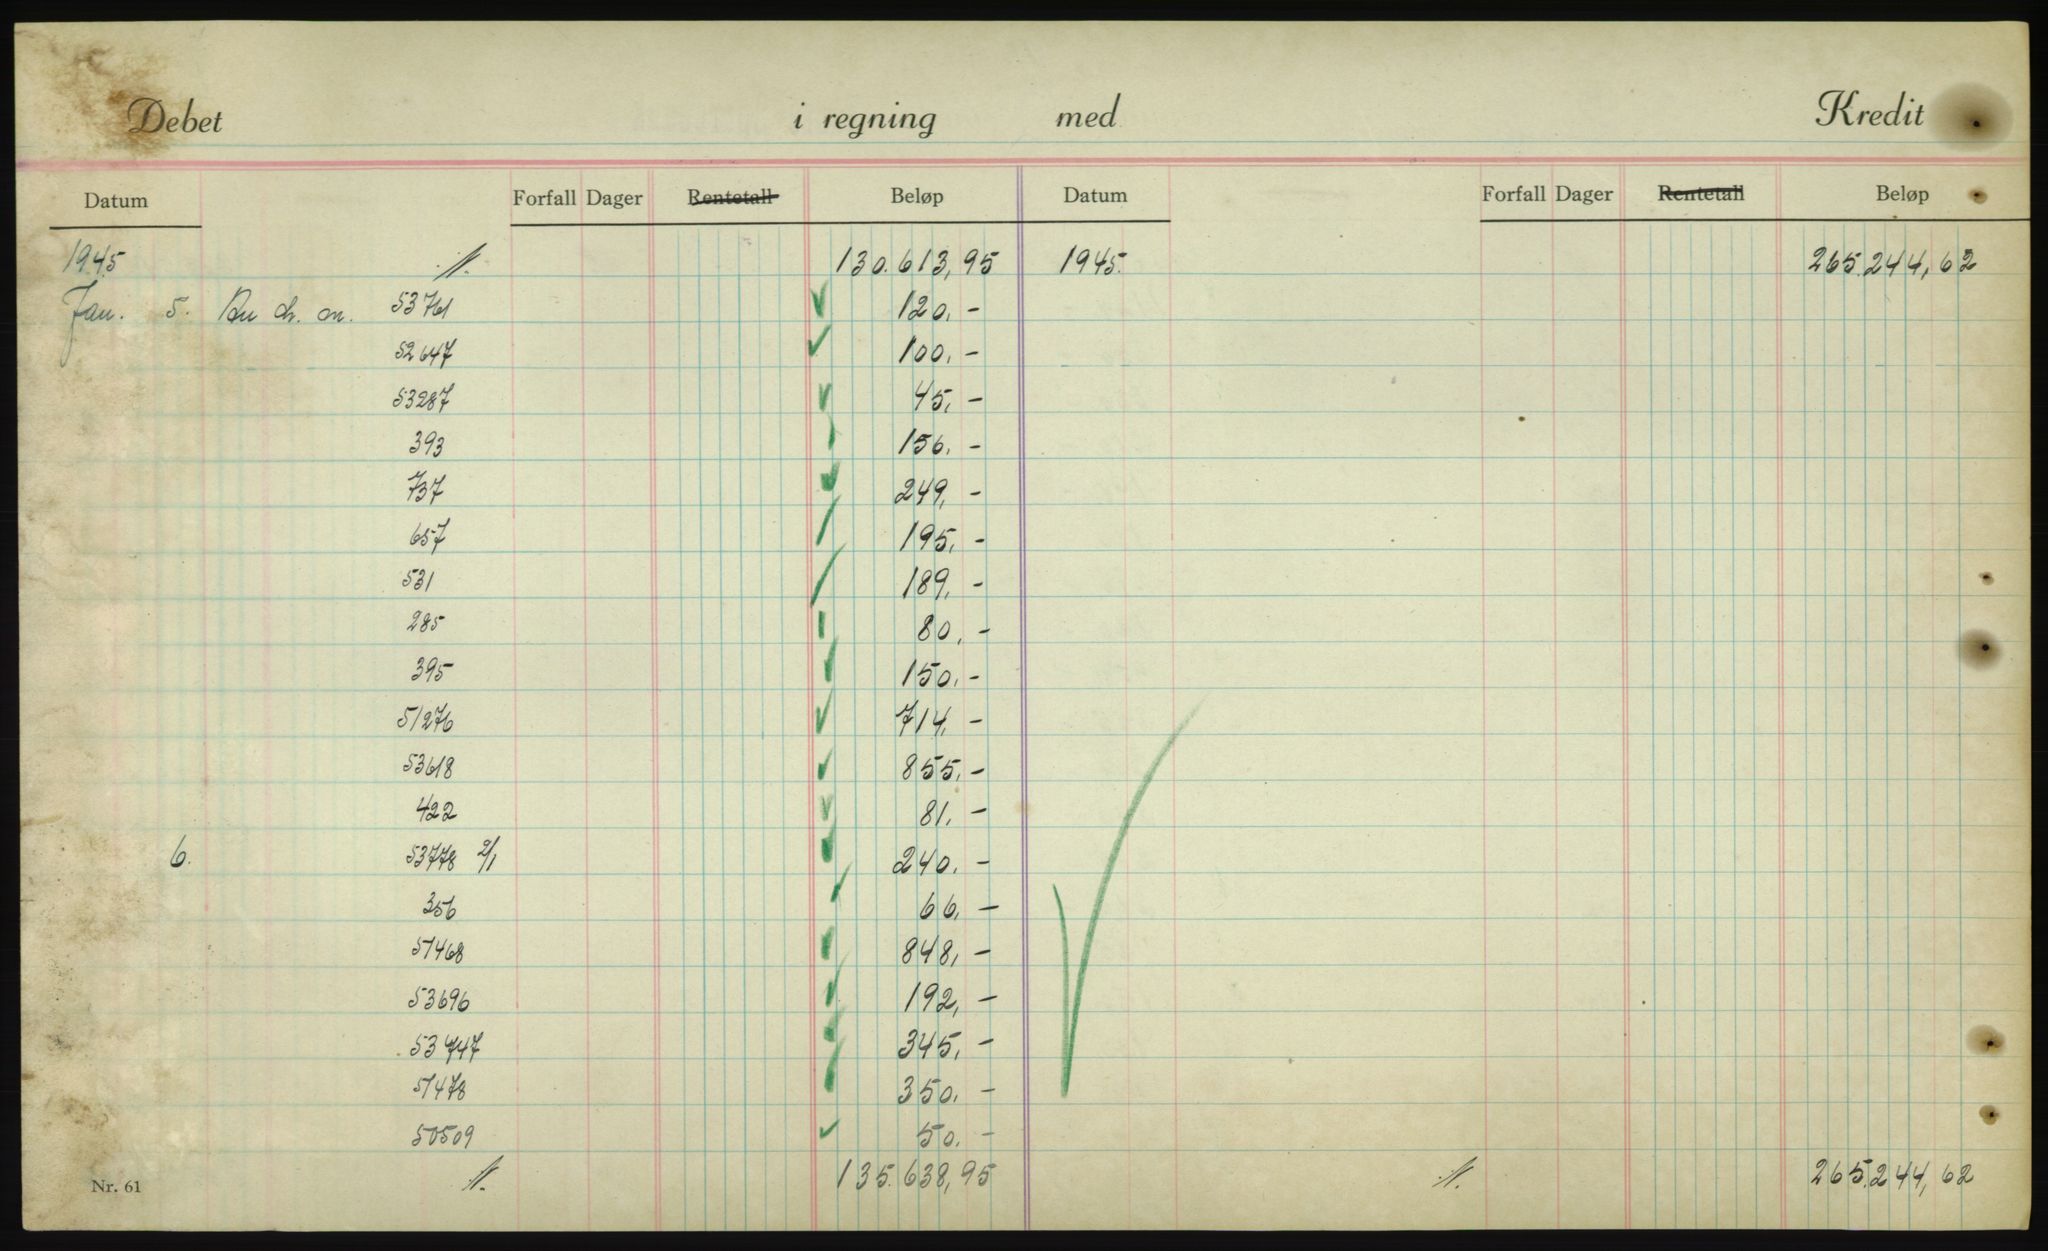 Debet i regning med Kredit
Datum Forfall Dager Rentetall Beløp Datum Forfall Dager Rentetall Beløp
1945 130.613,95 1945. 265.244,62
Jan. 5. An ch. on. 53761 120,-
52647 100,-
53287 45,-
393 156,-
737 249,-
657 195,-
531 189,-
285 80,-
395 150,-
51276 714,-
53618 855,-
422 81,-
6. 53778 2/1 240,-
356 66,-
51468 848,-
53696 192,-
53747 345,-
51478 350,-
50509 50,-
Nr. 61 135.638,95 265.244,62